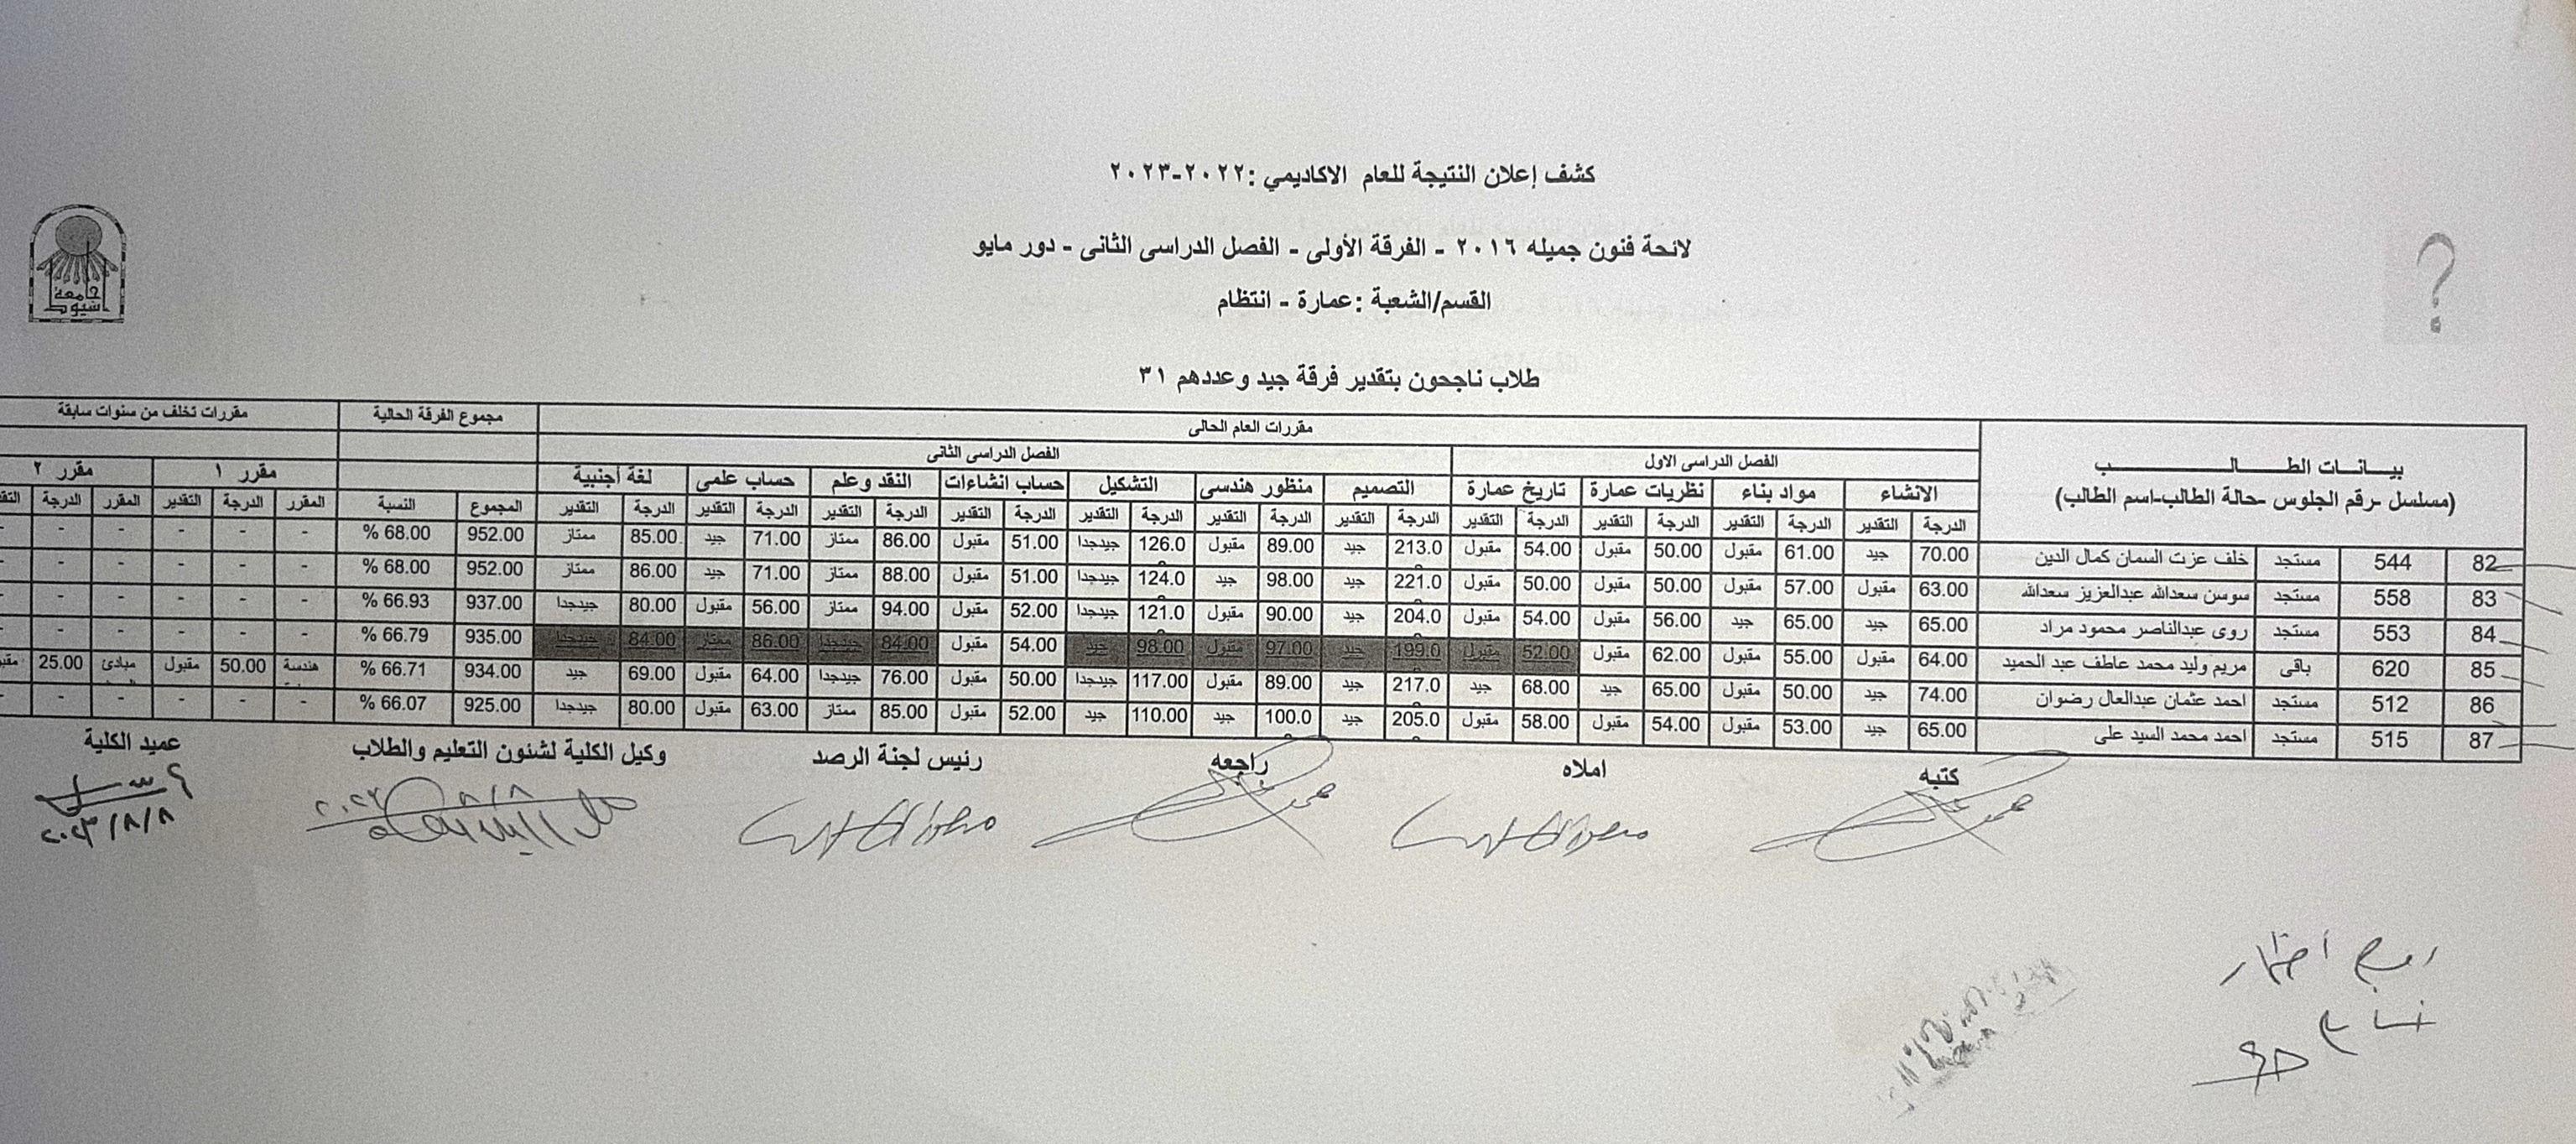 كشف إعلان النتيجة للعام الاكاديمي :٢٠٢٢-٢٠٢٣
لائحة فنون جميله ٢٠١٦ - الفرقة الأولى - الفصل الدراسى الثانى - دور مايو
القسم/الشعبة :عمارة - انتظام
جامعة اسيوط
طلاب ناجحون بتقدير فرقة جيد وعددهم ٣١
بيـــانـات الطــــالـــــــــب مقررات العام الحالى مجموع الفرقة الحالية مقررات تخلف من سنوات سابقة
(مسلسل -رقم الجلوس -حالة الطالب-اسم الطالب) الفصل الدراسى الاول الفصل الدراسى الثانى
الانشاء مواد بناء نظريات عمارة تاريخ عمارة التصميم منظور هندسى التشكيل حساب انشاءات النقد وعلم حساب علمى لغة أجنبية مقرر ١ مقرر ٢
الدرجة التقدير الدرجة التقدير الدرجة التقدير الدرجة التقدير الدرجة التقدير الدرجة التقدير الدرجة التقدير الدرجة التقدير الدرجة التقدير الدرجة التقدير الدرجة التقدير المجموع النسبة المقرر الدرجة التقدير المقرر الدرجة
82 544 مستجد خلف عزت السمان كمال الدين 70.00 جيد 61.00 مقبول 50.00 مقبول 54.00 مقبول 213.0 جيد 89.00 مقبول 126.0 جيدجدا 51.00 مقبول 86.00 ممتاز 71.00 جيد 85.00 ممتاز 952.00 68.00 % - - - - - -
83 558 مستجد سوسن سعدالله عبدالعزيز سعدالله 63.00 مقبول 57.00 مقبول 50.00 مقبول 50.00 مقبول 221.0 جيد 98.00 جيد 124.0 جيدجدا 51.00 مقبول 88.00 ممتاز 71.00 جيد 86.00 ممتاز 952.00 68.00 % - - - - - -
84 553 مستجد روى عبدالناصر محمود مراد 65.00 جيد 65.00 جيد 56.00 مقبول 54.00 مقبول 204.0 جيد 90.00 مقبول 121.0 جيدجدا 52.00 مقبول 94.00 ممتاز 56.00 مقبول 80.00 جيدجدا 937.00 66.93 % - - - - - -
85 620 باقى مريم وليد محمد عاطف عبد الحميد 64.00 مقبول 55.00 مقبول 62.00 مقبول 52.00 مقبول 199.0 جيد 97.00 مقبول 98.00 جيد 54.00 مقبول 84.00 جيدجدا 86.00 ممتاز 84.00 جيدجدا 935.00 66.79 % - - - - - -
86 512 مستجد احمد عثمان عبدالعال رضوان 74.00 جيد 50.00 مقبول 65.00 جيد 68.00 جيد 217.0 جيد 89.00 مقبول 117.00 جيدجدا 50.00 مقبول 76.00 جيدجدا 64.00 مقبول 69.00 جيد 934.00 66.71 % هندسة 50.00 مقبول مبادئ 25.00
87 515 مستجد احمد محمد السيد على 65.00 جيد 53.00 مقبول 54.00 مقبول 58.00 مقبول 205.0 جيد 100.0 جيد 110.00 جيد 52.00 مقبول 85.00 ممتاز 63.00 مقبول 80.00 جيدجدا 925.00 66.07 % - - - - - -
كتبه املاه راجعه رئيس لجنة الرصد وكيل الكلية لشئون التعليم والطلاب عميد الكلية
٢٠٢٣/٨/٨